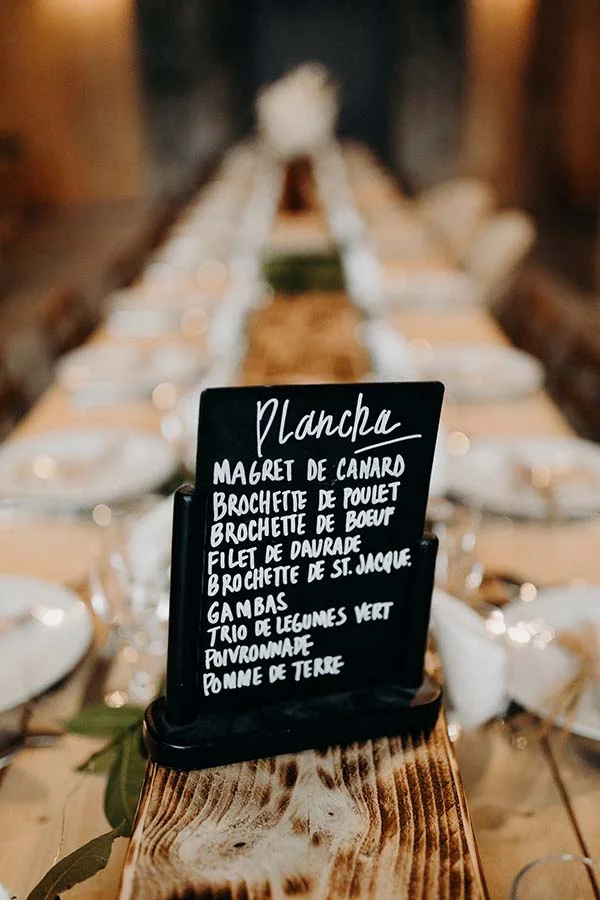 Plancha
MAGRET DE CANARD
BROCHETTE DE POULET
BROCHETTE DE BOEUF
FILET DE DAURADE
BROCHETTE DE ST. JACQUE.
GAMBAS
TRIO DE LEGUMES VERT
POIVRONNADE
POMME DE TERRE